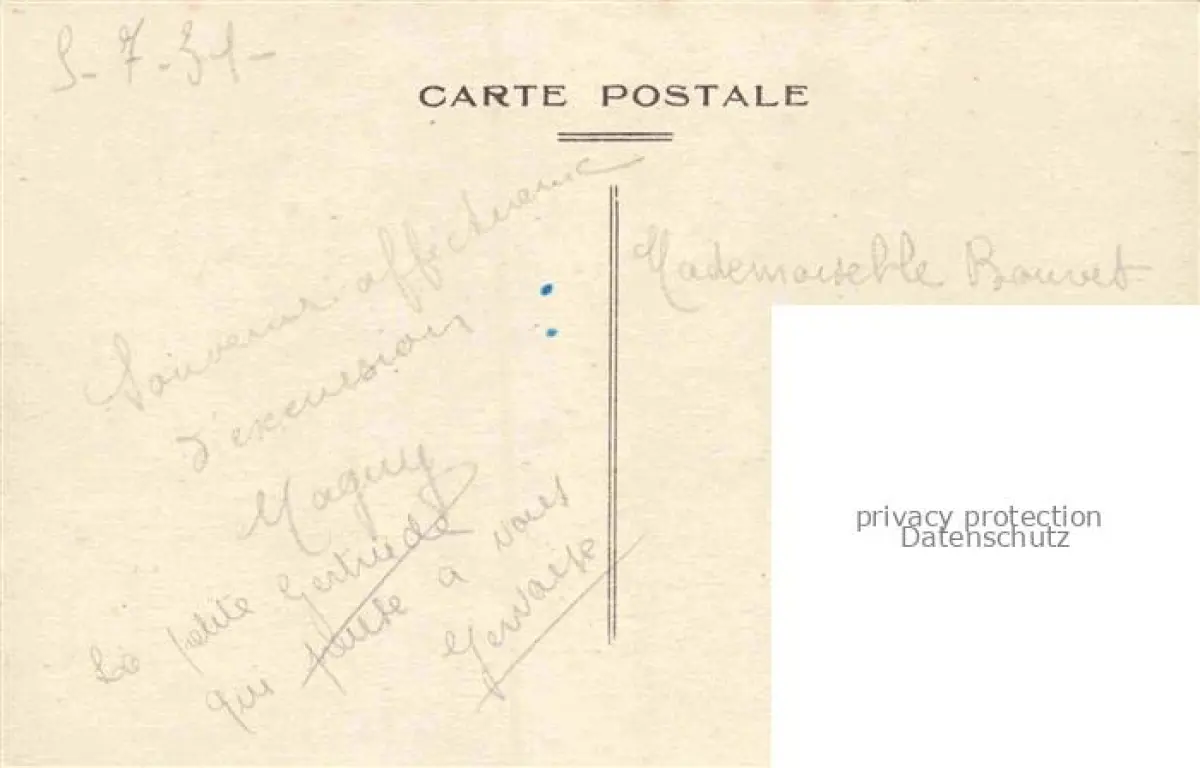 5-7-31-
CARTE POSTALE
Souvenir affectueux
d'excursion
Maguy
La petite Gertrude
qui pense à vous
Gervaise
Mademoiselle Bouvet
privacy protection
Datenschutz